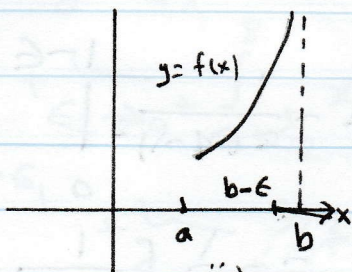 y = f(x)
b-ϵ
x
a
b